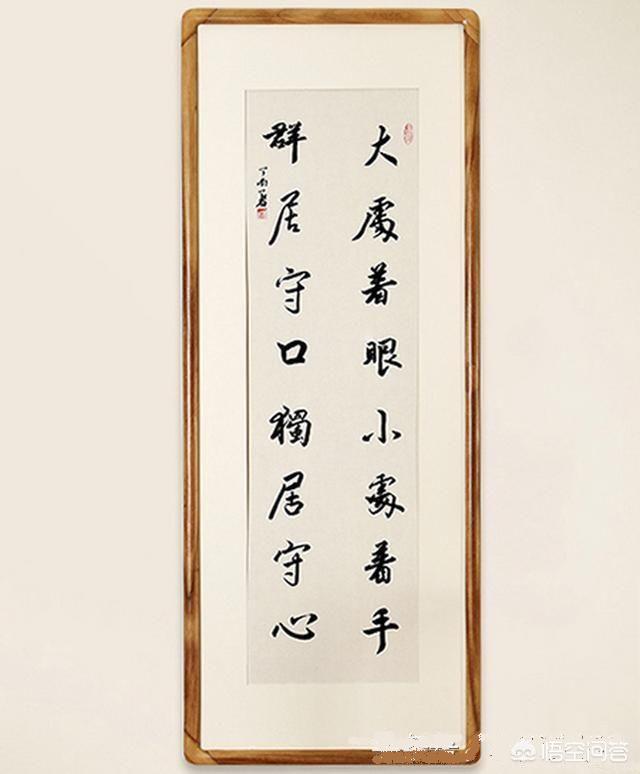 大處着眼小處着手
群居守口獨居守心
悟空问答